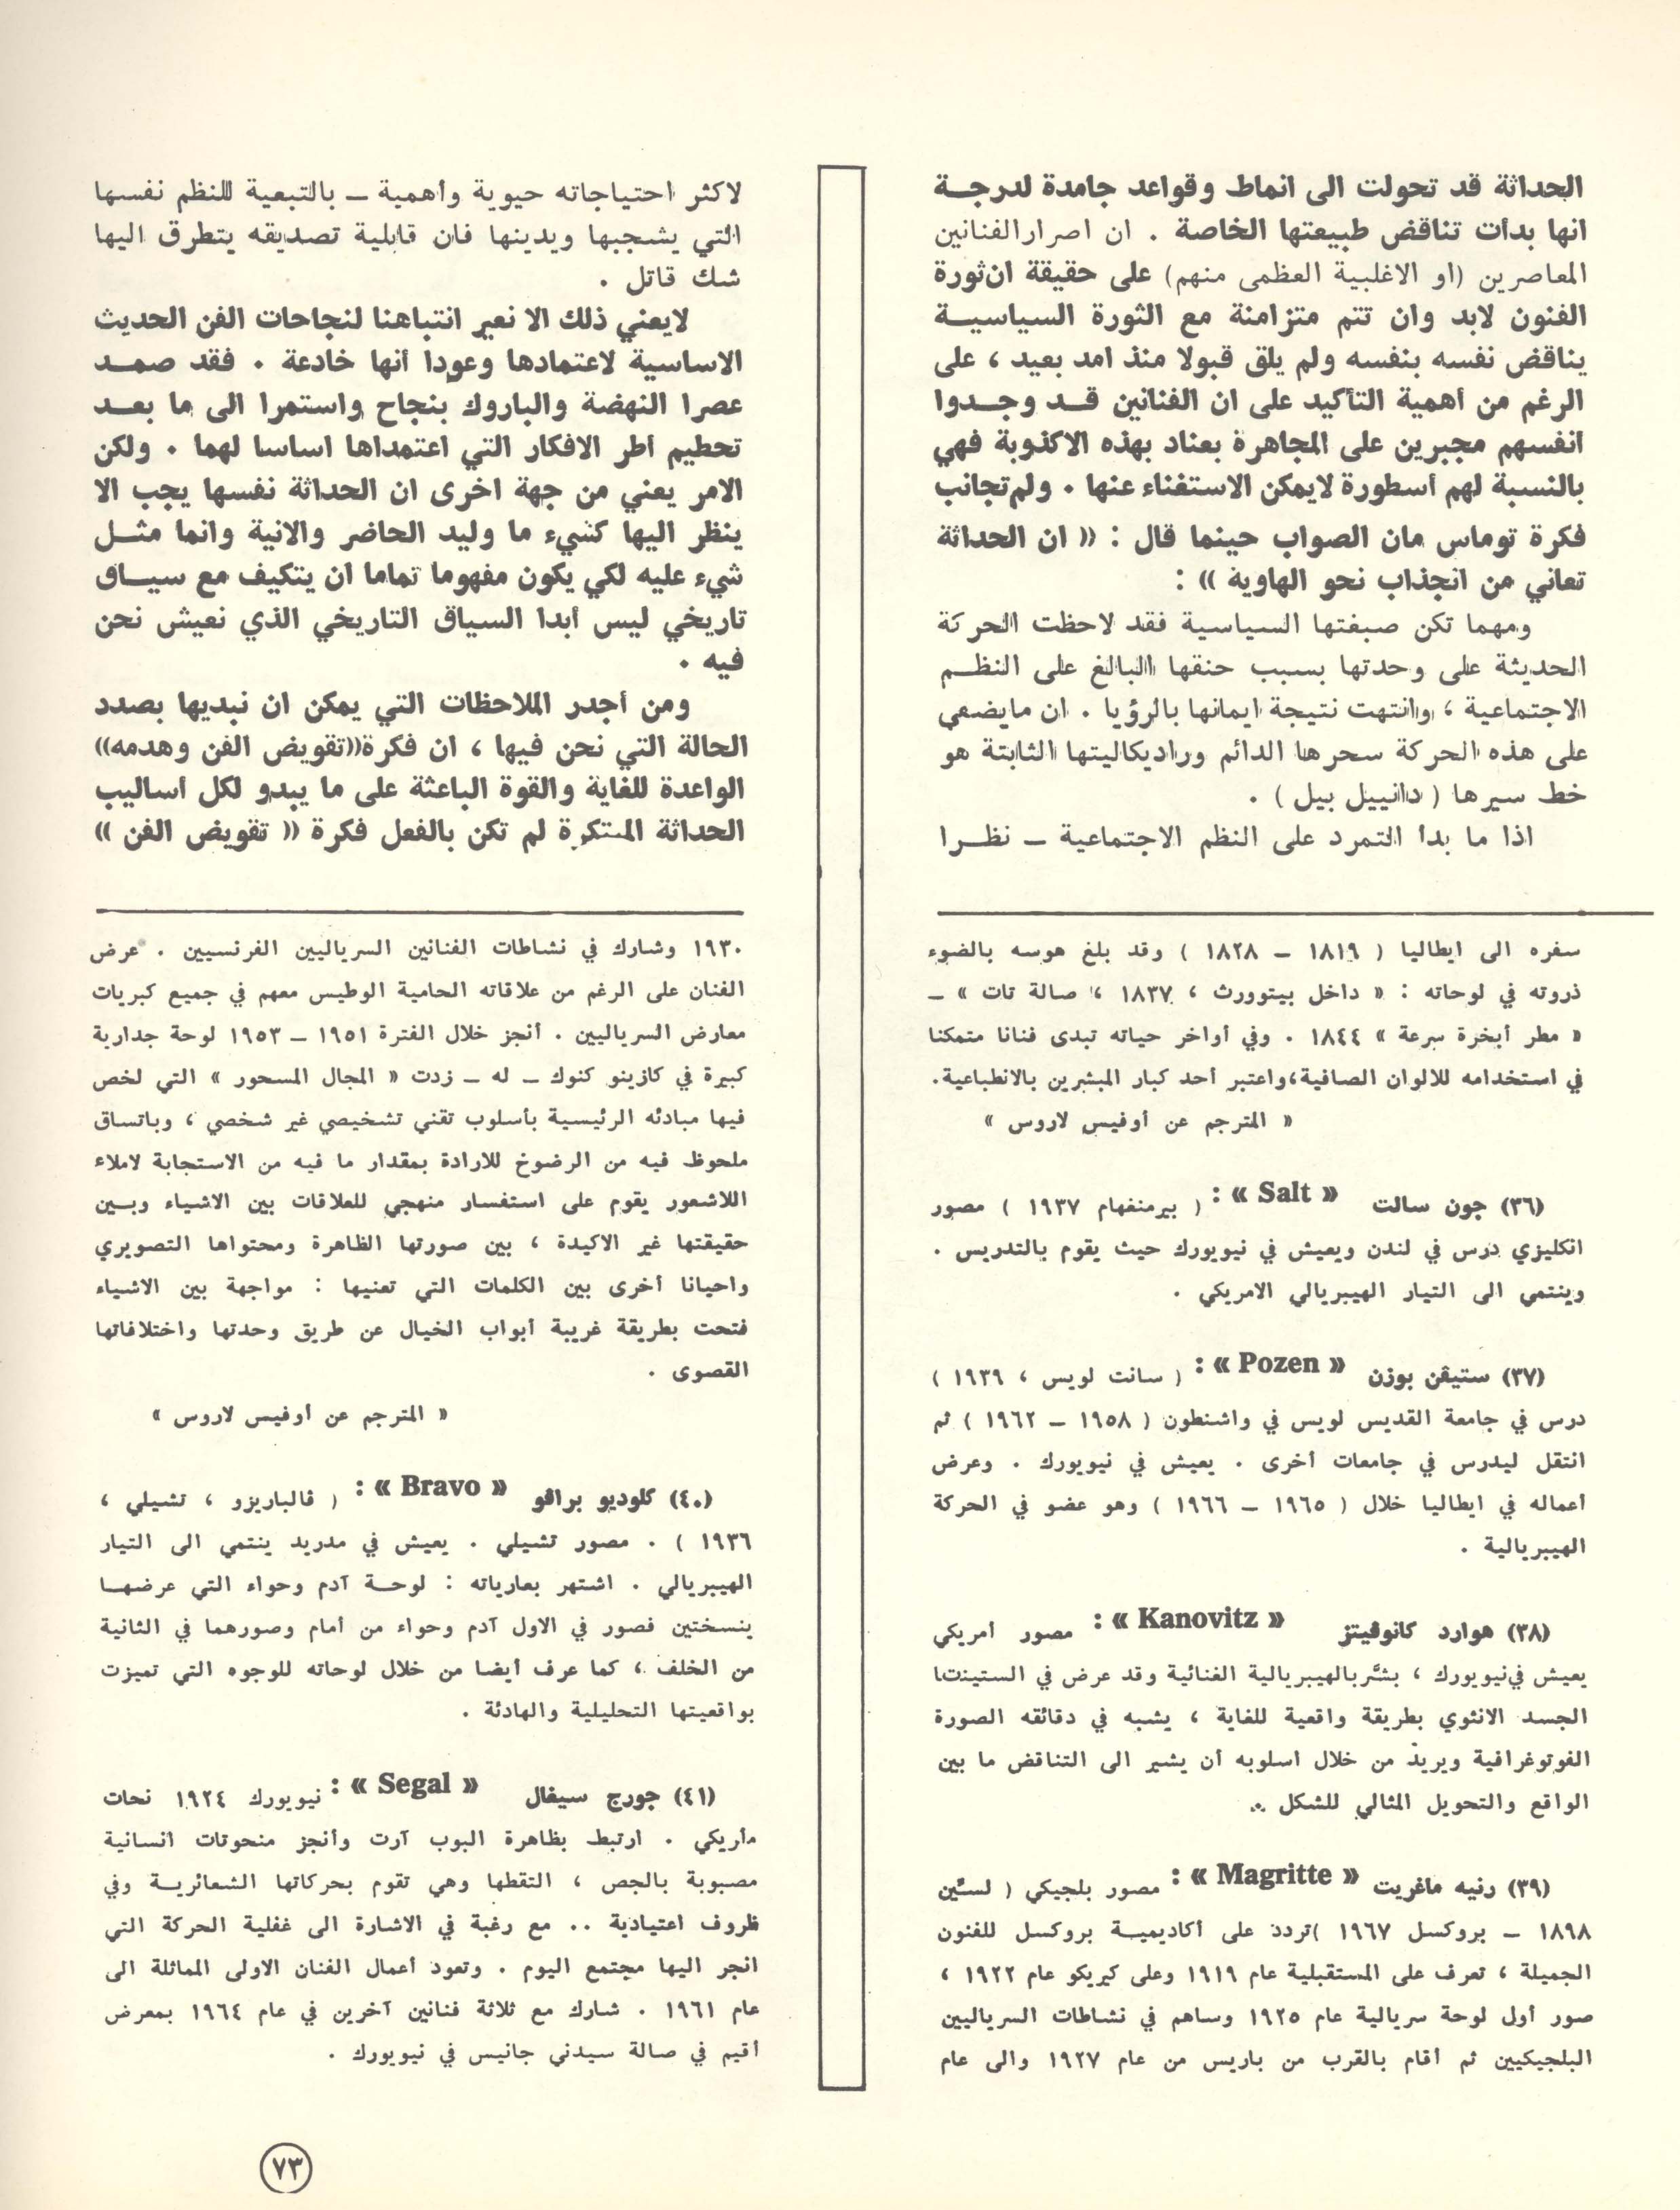 الحداثة قد تحولت الى انماط وقواعد جامدة لدرجـــة
انها بدأت تناقض طبيعتها الخاصة . ان اصرارالفنانين
المعاصرين (او الاغلبية العظمى منهم) على حقيقة ان ثورة
الفنون لابد وان تتم متزامنة مع الثورة السياسيـــة
يناقض نفسه بنفسه ولم يلق قبولا منذ امد بعيد ، على
الرغم من أهمية التأكيد على ان الفنانين قــد وجـدوا
انفسهم مجبرين على المجاهرة بعناد بهذه الاكذوبة فهي
بالنسبة لهم أسطورة لايمكن الاستغناء عنها . ولم تجانب
فكرة توماس مان الصواب حينما قال : « ان الحداثة
تعاني من انجذاب نحو الهاوية » :
ومهما تكن صبغتها السياسية فقد لاحظت الحركة
الحديثة على وحدتها بسبب حنقها البالغ على النظــم
الاجتماعية ، وانتهت نتيجة ايمانها بالرؤيا . ان مايضفي
على هذه الحركة سحرها الدائم وراديكاليتها الثابتة هو
خط سيرها ( دانييل بيل ) .
اذا ما بدأ التمرد على النظم الاجتماعية – نظــرا
لاكثر احتياجاته حيوية وأهمية – بالتبعية للنظم نفسها
التي يشجبها ويدينها فان قابلية تصديقه يتطرق اليها
شك قاتل .
لايعني ذلك الا نعير انتباهنا لنجاحات الفن الحديث
الاساسية لاعتمادها وعودا أنها خادعة . فقد صمــد
عصرا النهضة والباروك بنجاح واستمرا الى ما بعــد
تحطيم أطر الافكار التي اعتمداها اساسا لهما . ولكن
الامر يعني من جهة اخرى ان الحداثة نفسها يجب الا
ينظر اليها كشيء ما وليد الحاضر والانية وانما مثــل
شيء عليه لكي يكون مفهوما تماما ان يتكيف مع سيـــاق
تاريخي ليس أبدا السياق التاريخي الذي نعيش نحن
فيه .
ومن أجدر الملاحظات التي يمكن ان نبديها بصدد
الحالة التي نحن فيها ، ان فكرة«تقويض الفن وهدمه»
الواعدة للغاية والقوة الباعثة على ما يبدو لكل أساليب
الحداثة المبتكرة لم تكن بالفعل فكرة « تقويض الفن »
سفره الى ايطاليا ( ١٨١٩ – ١٨٢٨ ) وقد بلغ هوسه بالضوء
ذروته في لوحاته : « داخل بيتوورث ، ١٨٣٧ ، صالة تات » –
« مطر أبخرة سرعة » ١٨٤٤ . وفي أواخر حياته تبدى فنانا متمكنا
في استخدامه للالوان الصافية،واعتبر أحد كبار المبشرين بالانطباعية.
« المترجم عن أوفيس لاروس »
(٣٦) جون سالت « Salt » : ( بيرمنغهام ١٩٣٧ ) مصور
انكليزي درس في لندن ويعيش في نيويورك حيث يقوم بالتدريس .
وينتمي الى التيار الهيبريالي الامريكي .
(٣٧) ستيڤن بوزن « Pozen » : ( سانت لويس ، ١٩٣٩ )
درس في جامعة القديس لويس في واشنطون ( ١٩٥٨ – ١٩٦٢ ) ثم
انتقل ليدرس في جامعات أخرى . يعيش في نيويورك . وعرض
أعماله في ايطاليا خلال ( ١٩٦٥ – ١٩٦٦ ) وهو عضو في الحركة
الهيبريالية .
(٣٨) هوارد كانوڤيتز « Kanovitz » : مصور أمريكي
يعيش في نيويورك ، بشَّر بالهيبريالية الغنائية وقد عرض في الستينتا
الجسد الانثوي بطريقة واقعية للغاية ، يشبه في دقائقه الصورة
الفوتوغرافية ويريد من خلال اسلوبه أن يشير الى التناقض ما بين
الواقع والتحويل المثالي للشكل .
(٣٩) رنيه ماغريت « Magritte » : مصور بلجيكي ( لسّين
١٨٩٨ – بروكسل ١٩٦٧ )تردد على أكاديميـــة بروكسل للفنون
الجميلة ، تعرف على المستقبلية عام ١٩١٩ وعلى كيريكو عام ١٩٢٢ ،
صور أول لوحة سريالية عام ١٩٢٥ وساهم في نشاطات السرياليين
البلجيكيين ثم أقام بالقرب من باريس من عام ١٩٢٧ والى عام
١٩٣٠ وشارك في نشاطات الفنانين السرياليين الفرنسيين . عرض
الفنان على الرغم من علاقاته الحامية الوطيس معهم في جميع كبريات
معارض السرياليين . أنجز خلال الفترة ١٩٥١ – ١٩٥٣ لوحة جدارية
كبيرة في كازينو كنوك – له – زدت « المجال المسحور » التي لخص
فيها مبادئه الرئيسية بأسلوب تقني تشخيصي غير شخصي ، وباتساق
ملحوظ فيه من الرضوخ للارادة بمقدار ما فيه من الاستجابة لاملاء
اللاشعور يقوم على استفسار منهجي للعلاقات بين الاشياء وبــين
حقيقتها غير الاكيدة ، بين صورتها الظاهرة ومحتواها التصويري
واحيانا أخرى بين الكلمات التي تعنيها : مواجهة بين الاشياء
فتحت بطريقة غريبة أبواب الخيال عن طريق وحدتها واختلافاتها
القصوى .
« المترجم عن أوفيس لاروس »
(٤٠) كلوديو براڤو « Bravo » : ( ڤالباريزو ، تشيلي ،
١٩٣٦ ) . مصور تشيلي . يعيش في مدريد ينتمي الى التيار
الهيبريالي . اشتهر بعارياته : لوحــة آدم وحواء التي عرضهــا
ينسختين فصور في الاول آدم وحواء من أمام وصورهما في الثانية
من الخلف ، كما عرف أيضا من خلال لوحاته للوجوه التي تميزت
بواقعيتها التحليلية والهادئة .
(٤١) جورج سيغال « Segal » : نيويورك ١٩٢٤ نحات
مأريكي . ارتبط بظاهرة البوب آرت وأنجز منحوتات انسانية
مصبوبة بالجص ، التقطها وهي تقوم بحركاتها الشعائريــة وفي
ظروف اعتيادية .. مع رغبة في الاشارة الى غفلية الحركة التي
انجر اليها مجتمع اليوم . وتعود أعمال الفنان الاولى المماثلة الى
عام ١٩٦١ . شارك مع ثلاثة فنانين آخرين في عام ١٩٦٤ بمعرض
أقيم في صالة سيدني جانيس في نيويورك .
٧٣